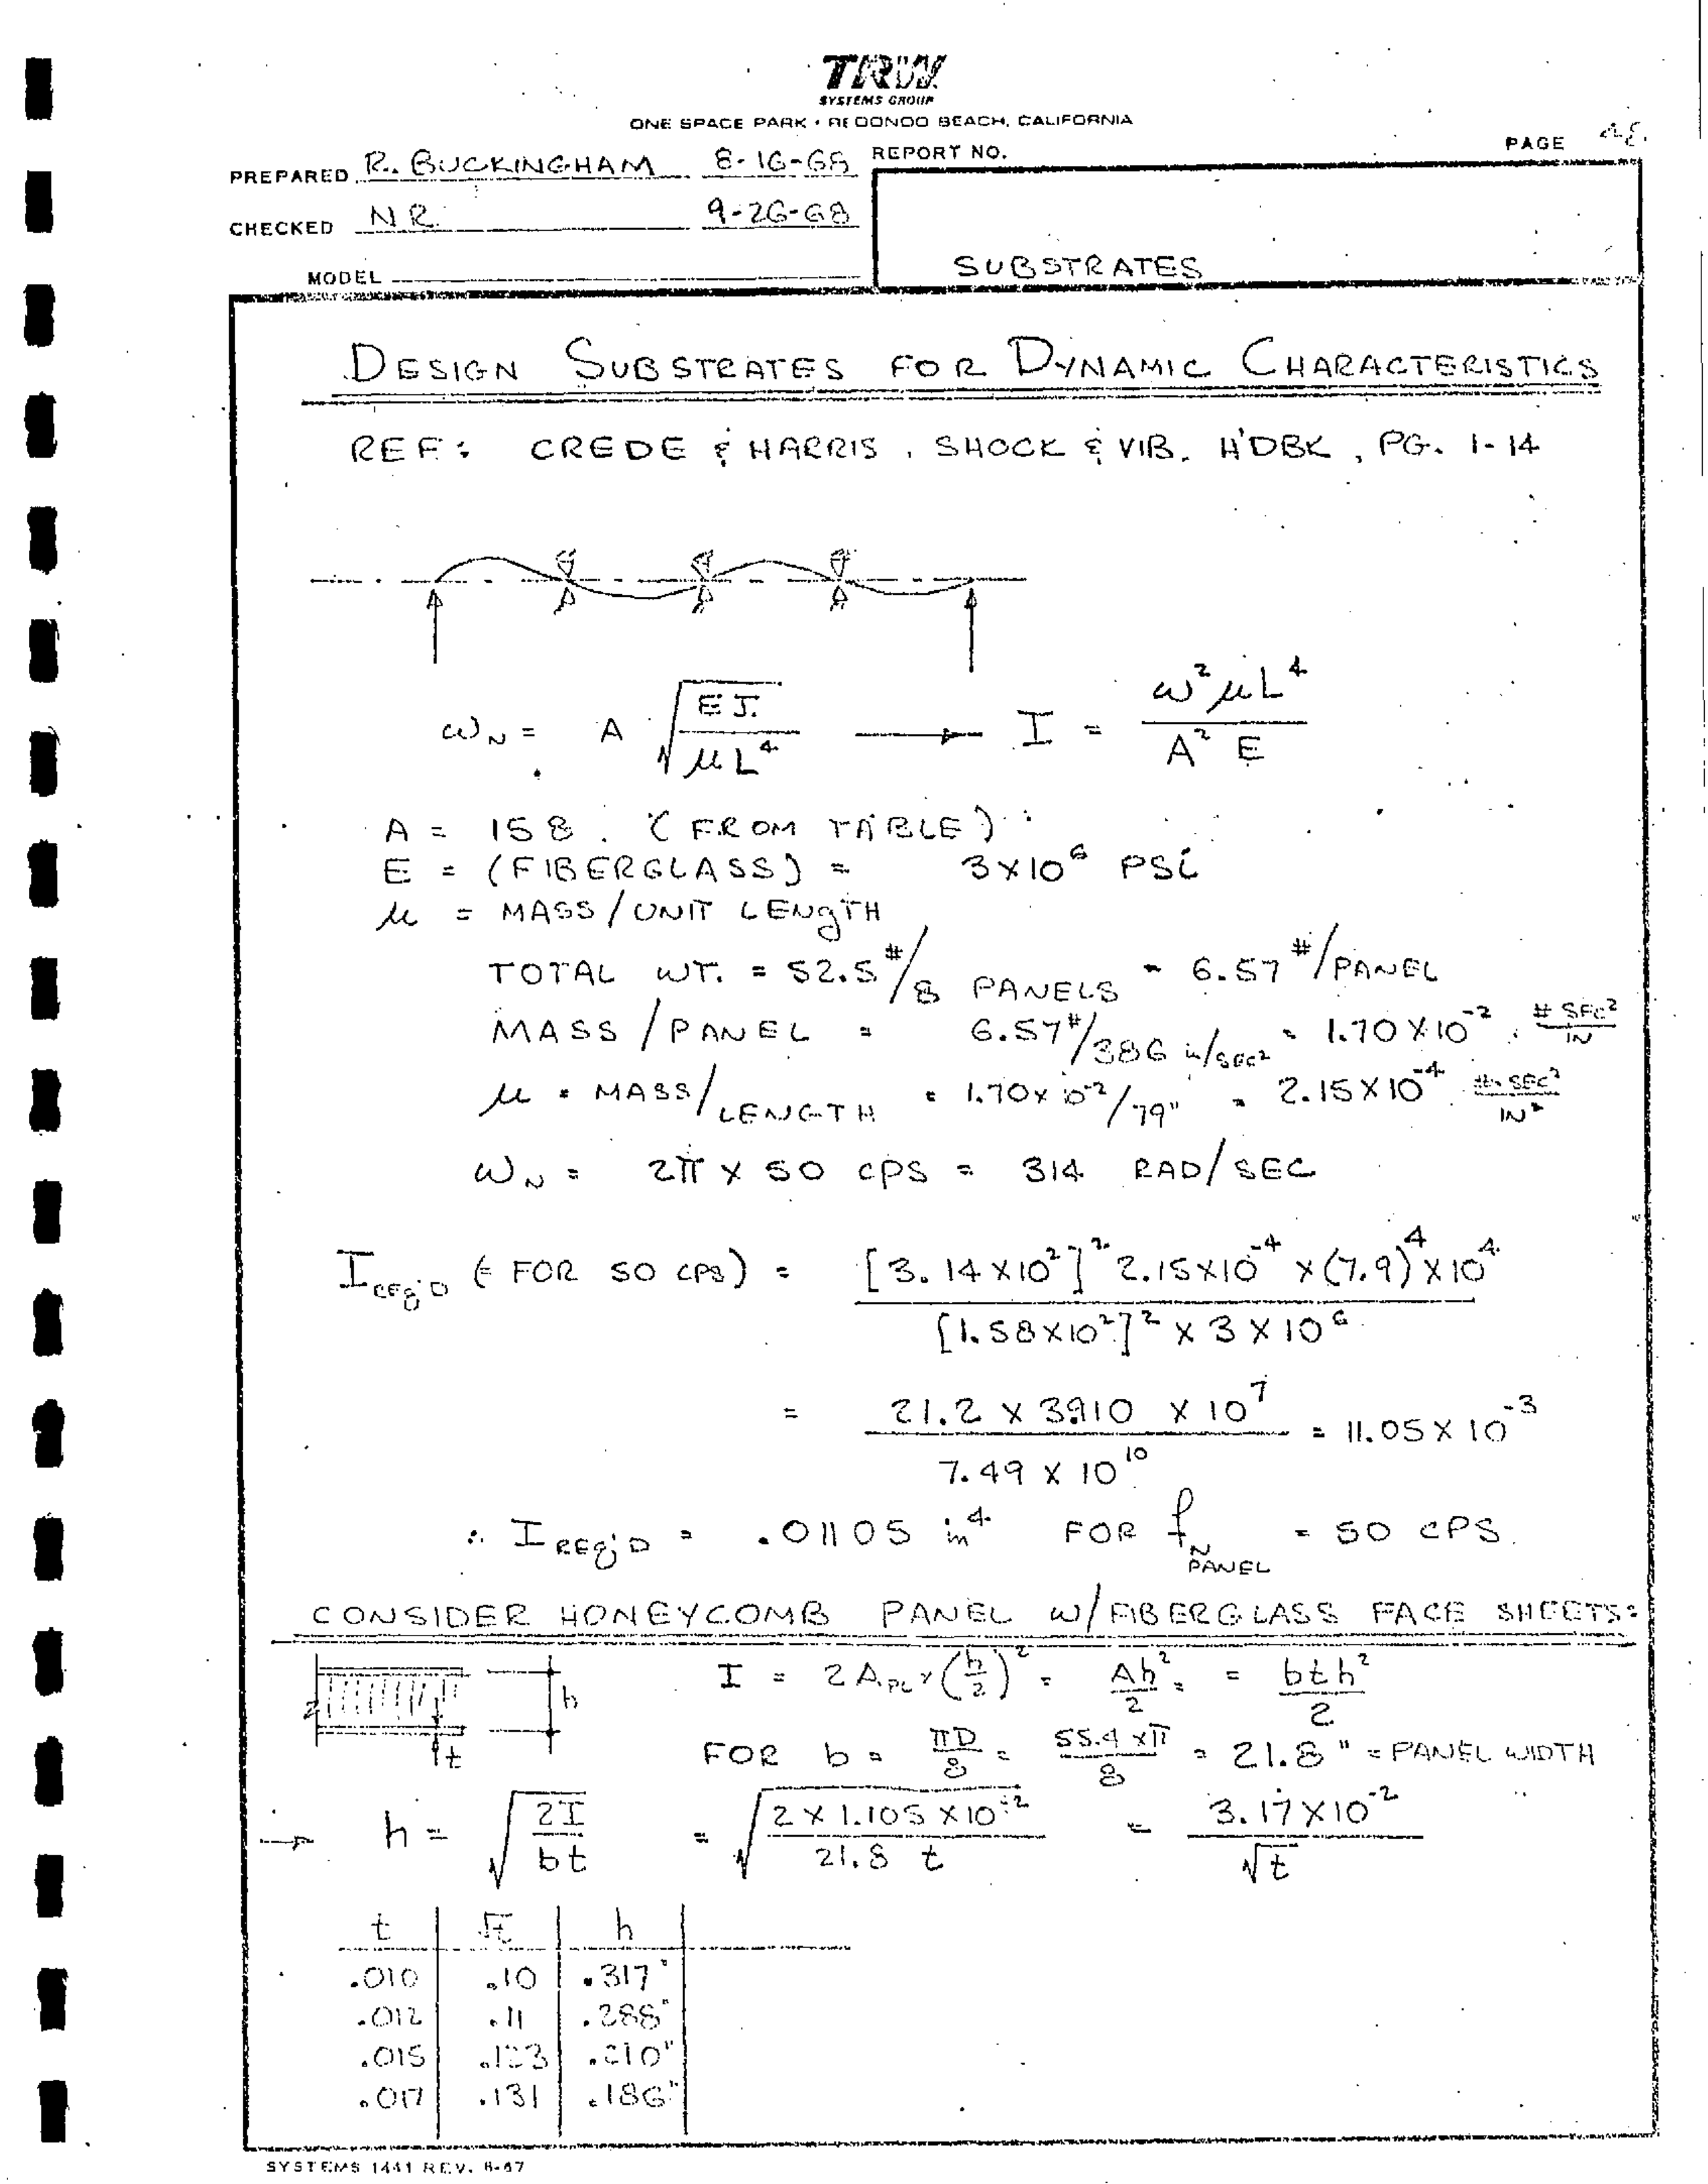 TRW
SYSTEMS GROUP
ONE SPACE PARK • REDONDO BEACH, CALIFORNIA
PAGE
PREPARED R. BUCKINGHAM 8-16-68 REPORT NO.
CHECKED N R 9-26-68
MODEL
SUBSTRATES
DESIGN SUBSTRATES FOR DYNAMIC CHARACTERISTICS
REF: CREDE & HARRIS, SHOCK & VIB. H'DBK, PG. 1-14
ω_N = A √(EI / μL⁴) → I = ω²μL⁴ / A²E
A = 158. (FROM TABLE)
E = (FIBERGLASS) = 3×10⁶ PSi
μ = MASS/UNIT LENgTH
TOTAL WT. = 52.5#/8 PANELS = 6.57#/PANEL
MASS/PANEL = 6.57#/386 in/SEC² = 1.70×10⁻² # SEC²/IN
μ = MASS/LENGTH = 1.70×10⁻²/79" = 2.15×10⁻⁴ #·SEC²/IN²
ω_N = 2π × 50 CPS = 314 RAD/SEC
I REq'D (= FOR 50 CPS) = [3.14×10²]² 2.15×10⁻⁴ ×(7.9)⁴×10⁴ / [1.58×10²]² × 3 × 10⁶
= 21.2 × 3910 × 10⁷ / 7.49 × 10¹⁰ = 11.05 × 10⁻³
∴ I REq'D = .01105 in⁴ FOR f_N PANEL = 50 CPS.
CONSIDER HONEYCOMB PANEL W/FIBERGLASS FACE SHEETS:
h
t
I = 2A_PL × (h/2)² = Ah²/2 = = bth²/2
FOR b = πD/8 = 55.4 × π/8 = 21.8" = PANEL WIDTH
→ h = √(2I / bt) = √(2 × 1.105 × 10⁻² / 21.8 t) = 3.17×10⁻² / √t
t √t h
.010 .10 .317"
.012 .11 .288"
.015 .123 .210"
.017 .131 .186"
SYSTEMS 1441 REV. 8-67